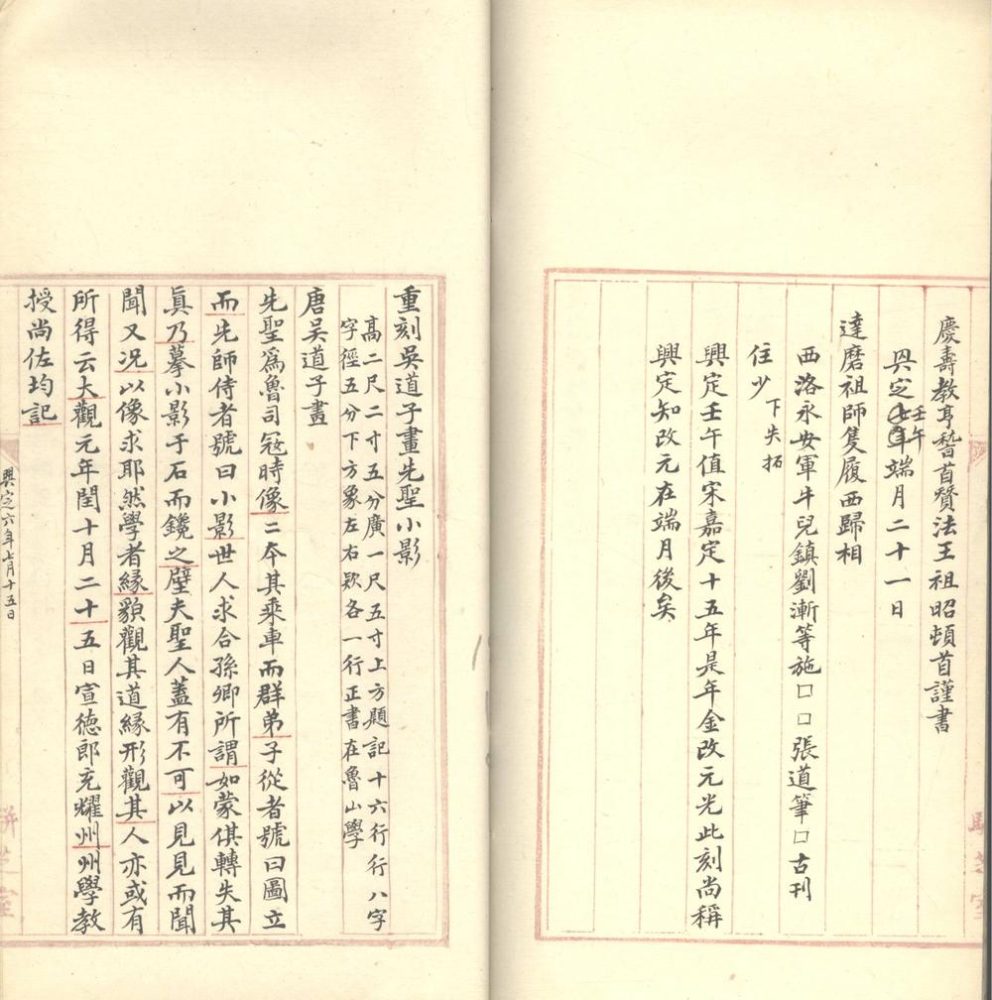 慶壽教亨稽首贊法王祖昭頓首謹書
興定壬午端月二十一日
達磨祖師隻履西歸相
西洛永安軍牛兒鎮劉漸等施□□張道筆□古刊
住少下失拓
興定壬午值宋嘉定十五年是年金改元光此刻尚稱
興定知改元在端月後矣
重刻吳道子畫先聖小影
高二尺二寸五分廣一尺五寸上方題記十六行行八字
字徑五分下方象左右款各一行正書在魯山學
唐吳道子畫
先聖爲魯司寇時像二本其乘車而群弟子從者號曰圖立
而先師侍者號曰小影世人求合孫卿所謂如蒙倛轉失其
眞乃摹小影于石而鑱之壁夫聖人蓋有不可以見見而聞
聞又况以像求耶然學者緣貌觀其道緣形觀其人亦或有
所得云大觀元年閏十月二十五日宣德郎充耀州州學教
授尚佐均記
興定六年七月十五日